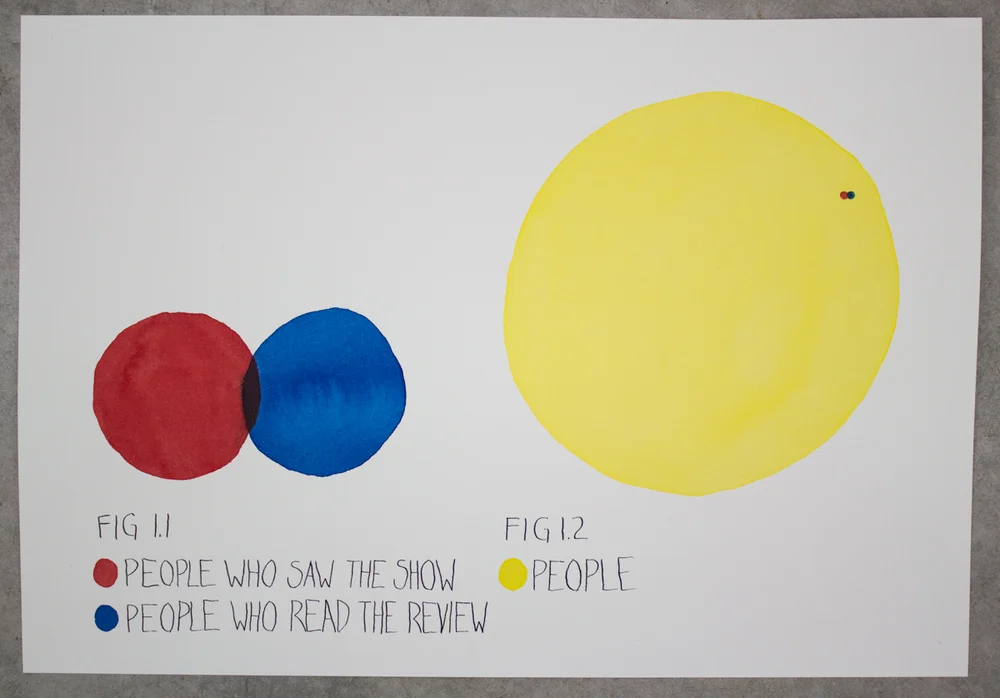 FIG 1.1
PEOPLE WHO SAW THE SHOW
PEOPLE WHO READ THE REVIEW
FIG 1.2
PEOPLE